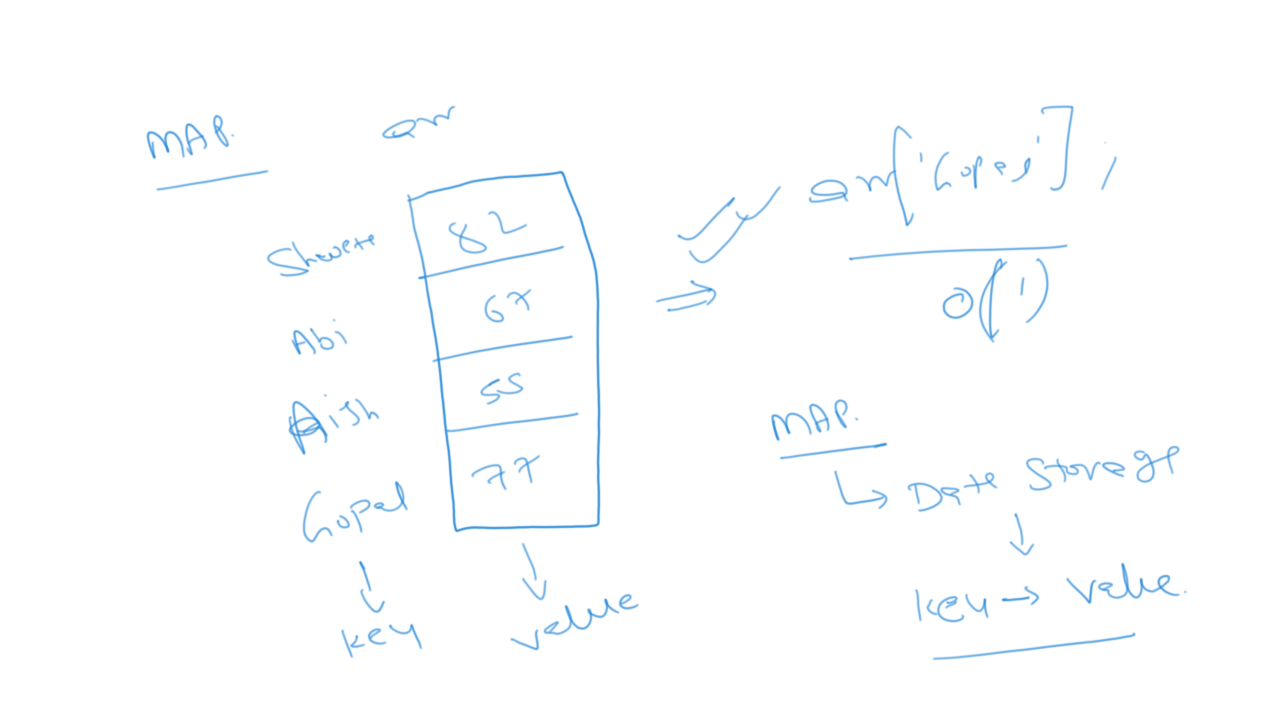 MAP.
arr
Shweta 82
Abi 67
Aish 55
Gopal 77
key value
⇒ arr['Gopal'];
O(1)
MAP.
↳ Data Storage
key → value.